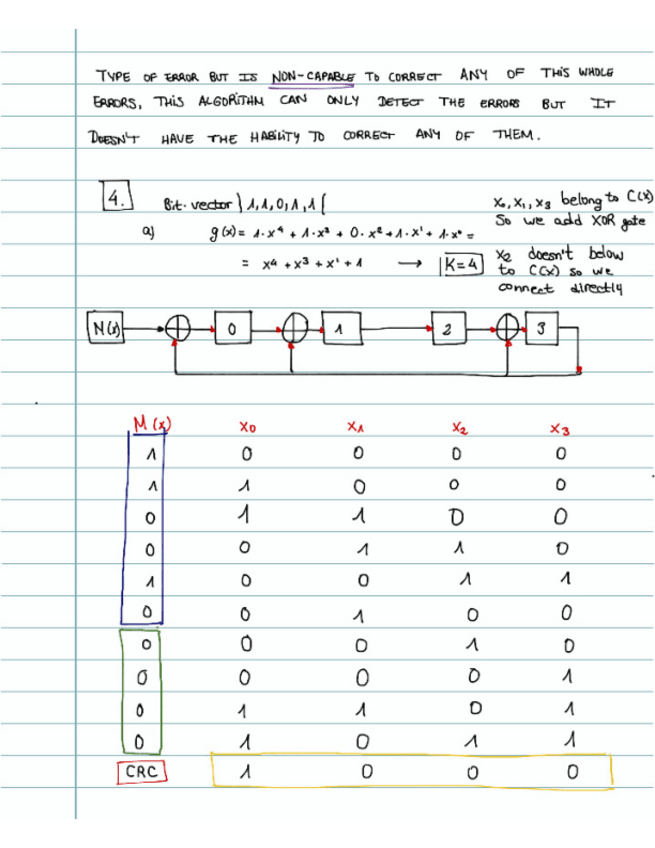 TYPE OF ERROR BUT IS NON-CAPABLE TO CORRECT ANY OF THIS WHOLE
ERRORS, THIS ALGORITHM CAN ONLY DETECT THE ERRORS BUT IT
DOESN'T HAVE THE HABILITY TO CORRECT ANY OF THEM.
4. Bit-vector } 1,1,0,1,1 {
x₀, x₁, x₃ belong to C(x)
So we add XOR gate
a) g(x) = 1·x⁴ + 1·x³ + 0·x² + 1·x¹ + 1·x⁰ =
= x⁴ + x³ + x¹ + 1 → K=4
x₂ doesn't below
to C(x) so we
connect directly
N(x) 0 1 2 3
M(x) x₀ x₁ x₂ x₃
1 0 0 0 0
1 1 0 0 0
0 1 1 0 0
0 0 1 1 0
1 0 0 1 1
0 0 1 0 0
0 0 0 1 0
0 0 0 0 1
0 1 1 0 1
0 1 0 1 1
CRC 1 0 0 0